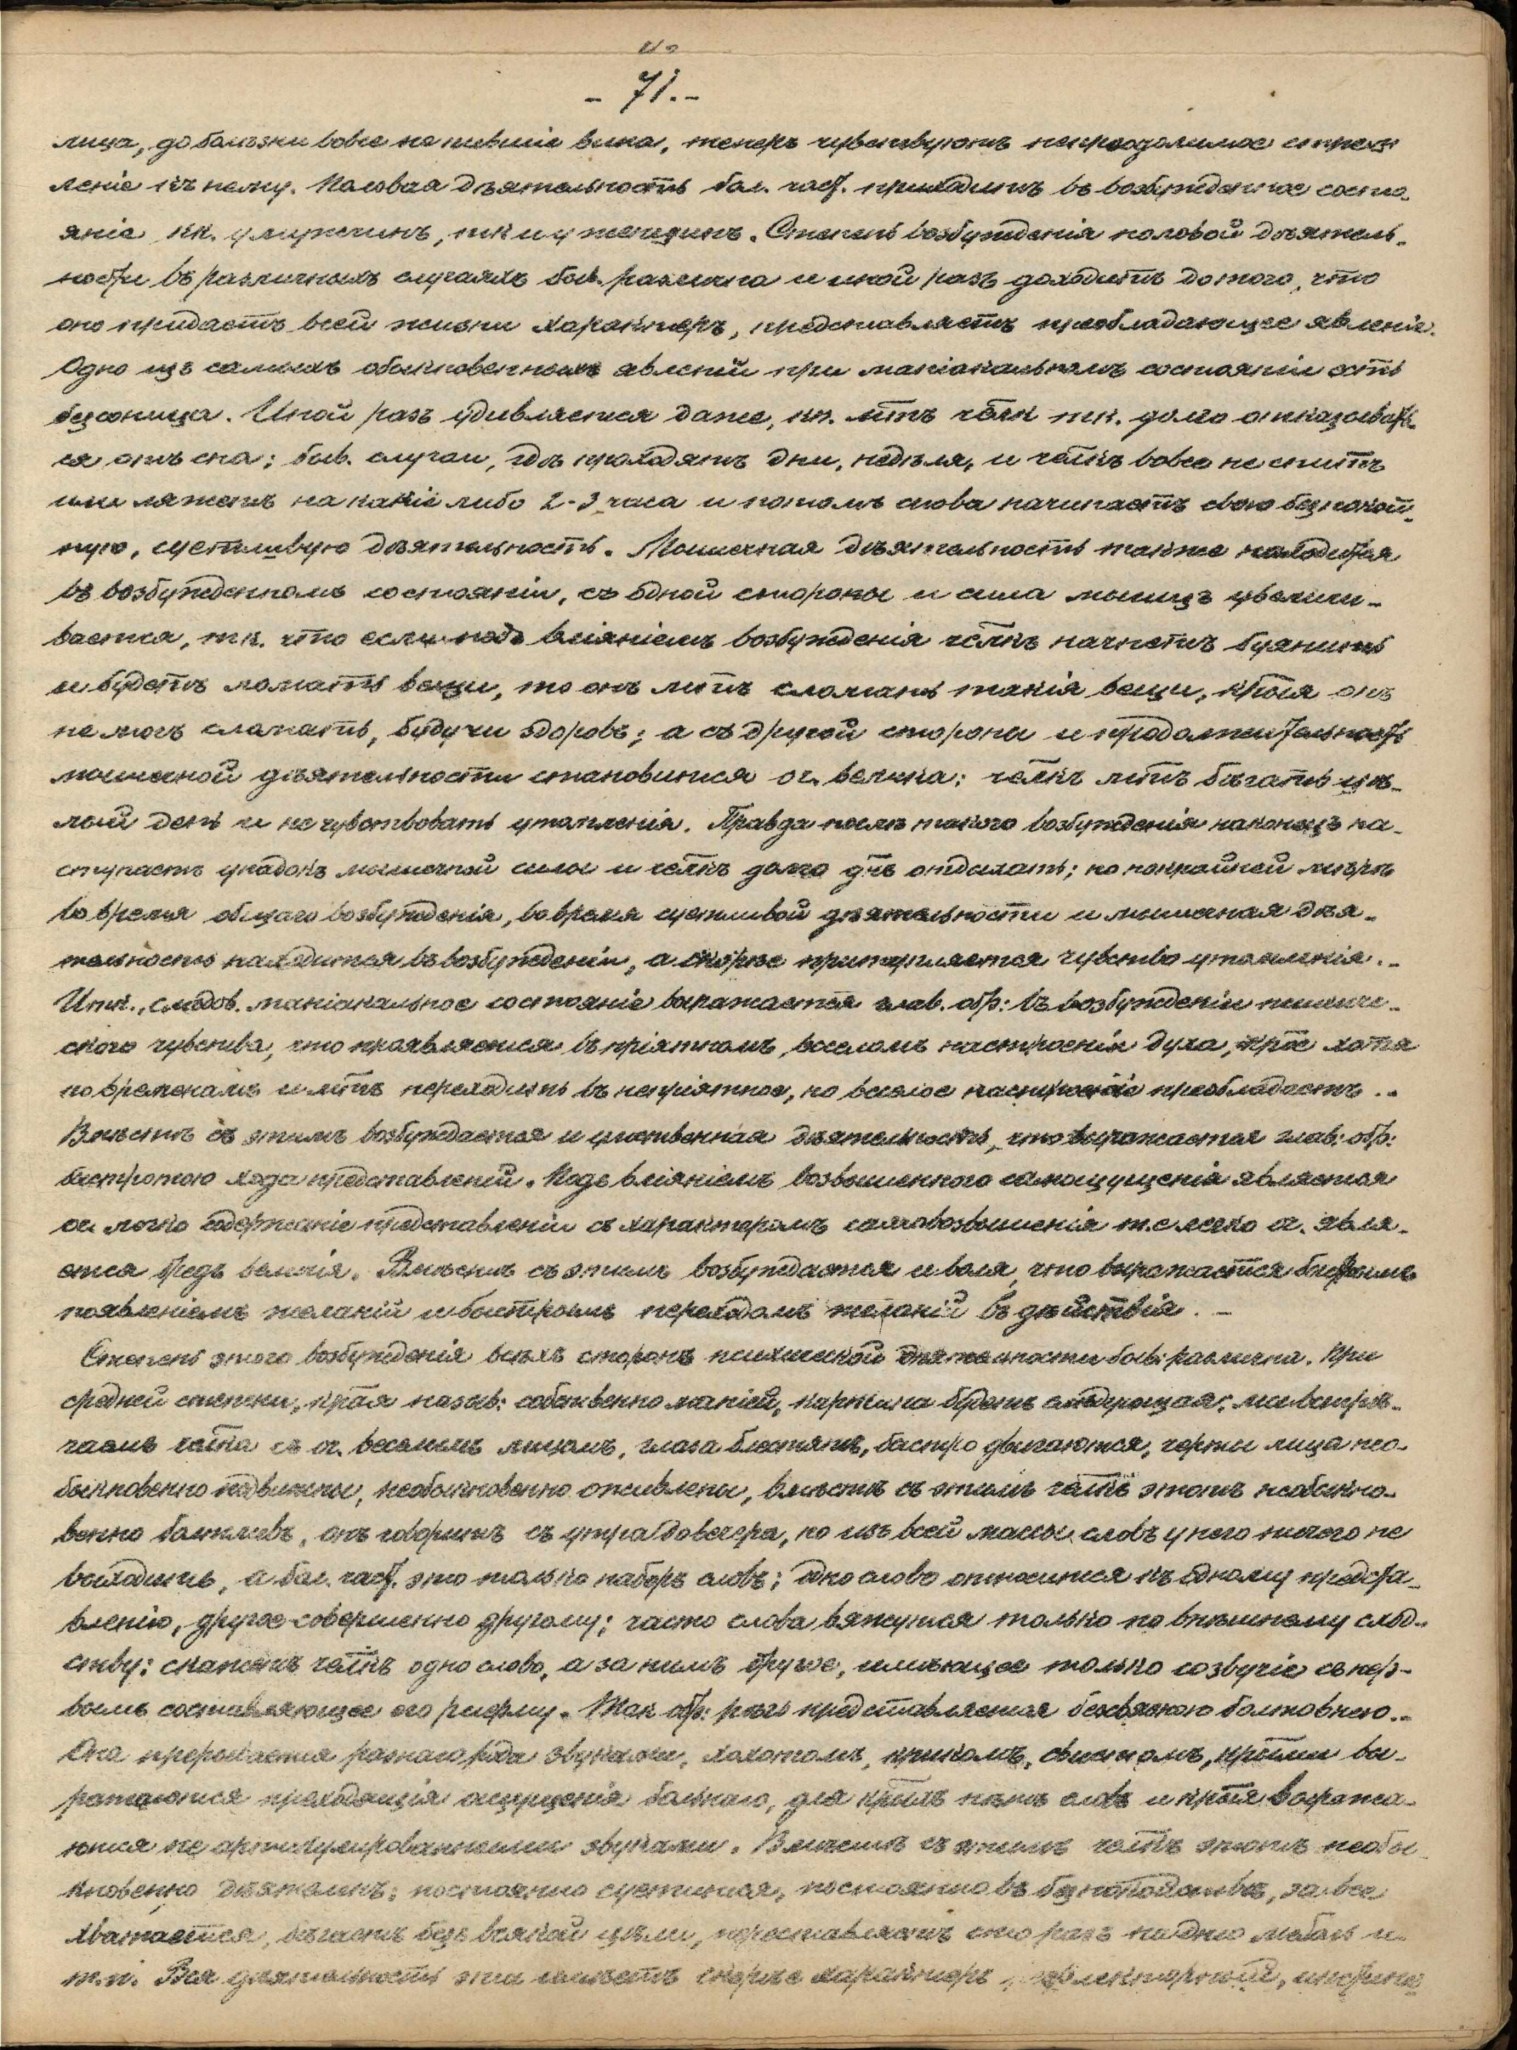 - 71. -
лица, до болѣзни вовсе не пившіе вина, теперь чувствуютъ непреодолимое стрем
леніе къ нему. Половая дѣятельность бол. част. приходитъ въ возбужденное состо-
яніе кк. у мужчинъ, тк и у женщинъ. Степень возбужденія половой дѣятель-
ности въ различныхъ случаяхъ быв. различна и иной разъ доходитъ до того, что
оно придаетъ всей жизни характеръ, представляетъ преобладающее явленіе.
Одно изъ самыхъ обыкновенныхъ явленій при маніакальномъ состояніи есть
безсонница. Иной разъ удивляешься даже, кк. м̅тъ чл̅къ тк. долго отказывать-
ся отъ сна; быв. случаи, гдѣ проходятъ дни, недѣля, и чл̅къ вовсе не спитъ
или ляжетъ на какіе либо 2-3 часа и потомъ снова начинаетъ свою безпокой-
ную, суетливую дѣятельность. Мышечная дѣятельность также находится
въ возбужденномъ состояніи, съ одной стороны и сила мышцъ увеличи-
вается, тк. что если подъ вліяніемъ возбужденія чл̅къ начнетъ буянить
и будетъ ломать вещи, то онъ м̅тъ сломать такія вещи, кт̅рыя онъ
не могъ сломать, будучи здоровъ; а съ другой стороны и продолжительность
мышечной дѣятельности становится оч. велика: чл̅къ м̅тъ бѣгать цѣ-
лый день и не чувствовать утомленія. Правда послѣ такого возбужденія наконецъ на-
ступаетъ упадокъ мышечной силы и чл̅къ долго д̅нъ отдыхать; но по крайней мѣрѣ
во время общаго возбужденія, во время суетливой дѣятельности и мышечная дѣя-
тельность находится въ возбужденіи, а скорѣе притупляется чувство утомленія. -
Итк., слѣдов. маніакальное состояніе выражается глав. обр: въ возбужденіи психиче-
скаго чувства, что проявляется въ пріятномъ, веселомъ настроеніи духа, кт̅рое хотя
по временамъ и м̅тъ переходить въ непріятное, но веселое настроеніе преобладаетъ. -
Вмѣстѣ съ этимъ возбуждается и умственная дѣятельность, что выражается глав: обр:
быстротою хода представленій. Подъ вліяніемъ возвышеннаго самоощущенія является
оч. легко содержаніе представленій съ характеромъ самовозвышенія т.е легко оч. явля-
ется бредъ величія. Вмѣстѣ съ этимъ возбуждается и воля, что выражается быстрымъ
появленіемъ желаній и быстрымъ переходомъ желаній въ дѣйствія. -
Степень этого возбужденія всѣхъ сторонъ психической дѣятельности быв: различна. При
средней степени, кт̅рая назыв: собственно маніей, картина будетъ слѣдующая: мы встрѣ-
чаемъ чл̅ка съ оч. веселымъ лицомъ, глаза блестятъ, быстро двигаются, черты лица нео-
быкновенно подвижны, необыкновенно оживлены, вмѣстѣ съ этимъ чл̅къ этотъ необыкно-
венно болтливъ, онъ говоритъ съ утра до вечера, но изъ всей массы словъ у него ничего не
выходитъ, а бол. част. это только наборъ словъ; одно слово относится къ одному предста-
вленію, другое совершенно другому; часто слова вяжутся только по внѣшнему сход-
ству: скажетъ чл̅къ одно слово, а за нимъ другое, имѣющее только созвучіе съ пер-
вымъ составляющее его рифму. Так. обр: рѣчь представляется безсвязною болтовнею. -
Она прерывается разнаго рода звуками, хохотомъ, крикомъ, свистомъ, кт̅рыми вы-
ражаются преходящія ощущенія больного, для кт̅рыхъ нѣтъ словъ и кт̅рыя выража-
ются не артикулированными звуками. Вмѣстѣ съ этимъ чл̅къ этотъ необы-
кновенно дѣятеленъ: постоянно суетится, постоянно въ безпокойствѣ, за все
хватается, бѣгаетъ безъ всякой цѣли, переставляетъ сто разъ на дню мебель и
т. п. Вся дѣятельность эта имѣетъ скорѣе характеръ рефлекторный, инстинк